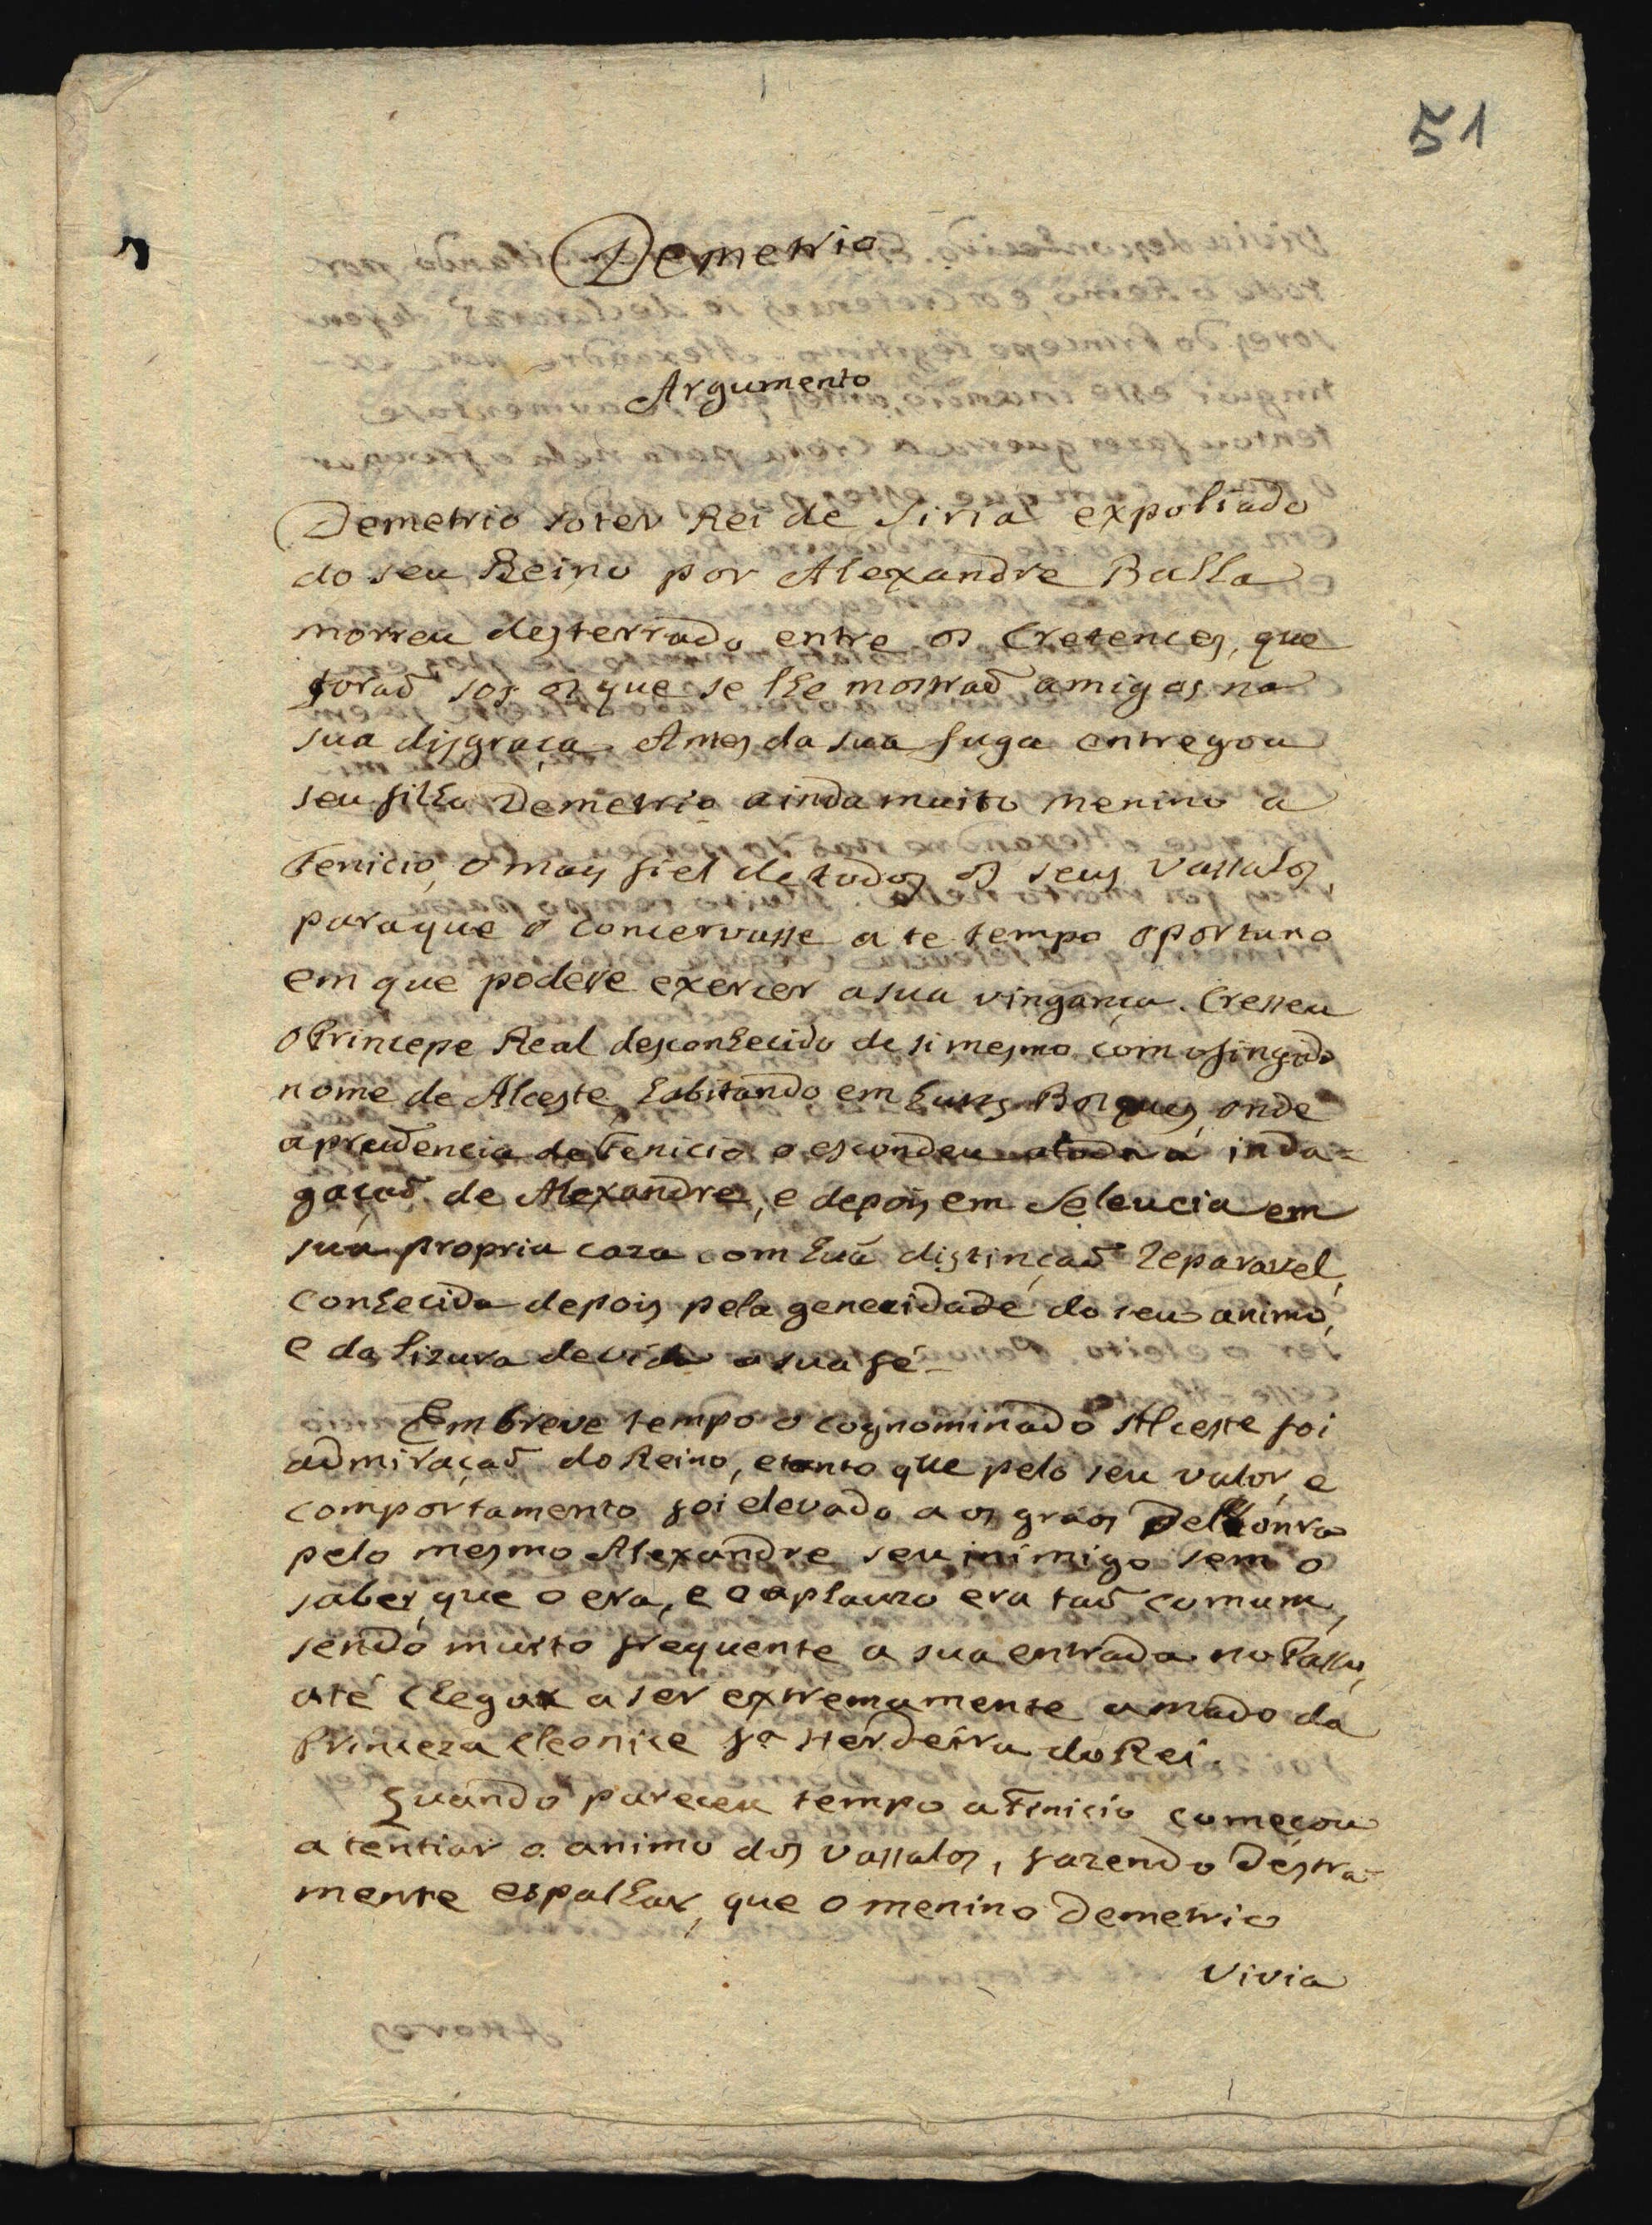 51
Demetrio
Argumento
Demetrio soter Rei de Siria expoliado
do seu Reino por Alexandre Balla
morreu desterrado entre os Cretences, que
foraõ sos os que se lhe mostraõ amigos na
sua disgraça. Antes da sua fuga entregou
seu filho Demetrio ainda muito menino a
Fenicio, o mais fiel de todos os seus Vassalos,
paraque o concervasse a te tempo oportuno
em que podese exercer a sua vingança. Cresseu
o Principe Real desconhecido de si mesmo com o fingido
nome de Alceste habitando em huns Bosques, onde
a prudencia de Fenicio o escondeu a toda a inda=
gaçaõ de Alexandre, e depois em Seleucia em
sua propria caza com huã distinçaõ reparavel,
conhecida depois pela generidade do seu animo,
e da lizura devida a sua fé-
Em breve tempo o cognominado Alceste foi
admiraçaõ do Reino, e tanto que pelo seu valor, e
comportamento foi elevado a os gráos de honra
pelo mesmo Alexandre seu inimigo sem o
saber, que o era, e o aplauzo era taõ comum,
sendo muito frequente a sua entrada no Passo,
até chegar a ser extremamente amado da
Princeza Cleonice fª Herdeira do Rei.
Quando pareceu tempo a Fenicio começou
a tentiar o animo dos vassalos, fazendo déstra-
mente espalhar, que o menino Demetrio
Vivia